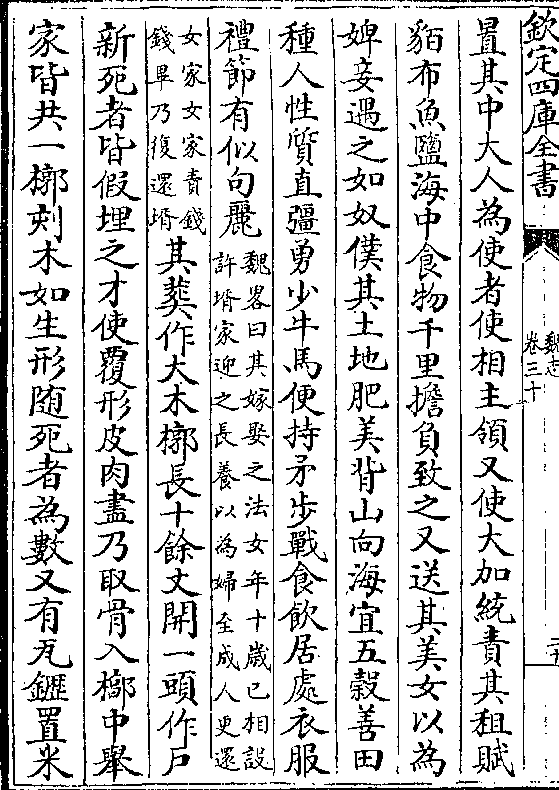 欽定四庫全書
魏志
卷三十
二十
置其中大人為使者使相主領又使大加統責其租賦
貊布魚鹽海中食物千里擔負致之又送其美女以為
婢妾遇之如奴僕其土地肥美背山向海宜五穀善田
種人性質直彊勇少牛馬便持矛步戰食飲居處衣服
禮節有似句麗魏畧曰其嫁娶之法女年十歲已相設
許壻家迎之長養以為婦至成人更還
女家女家責錢
錢畢乃復還壻其葬作大木槨長十餘丈開一頭作戸
新死者皆假埋之才使覆形皮肉盡乃取骨入槨中舉
家皆共一槨刻木如生形随死者為數又有瓦𨬍置米